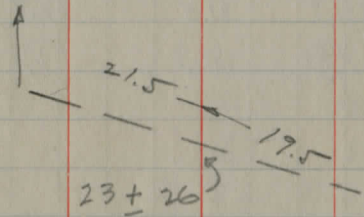 21.5
19.5
23 ± 26